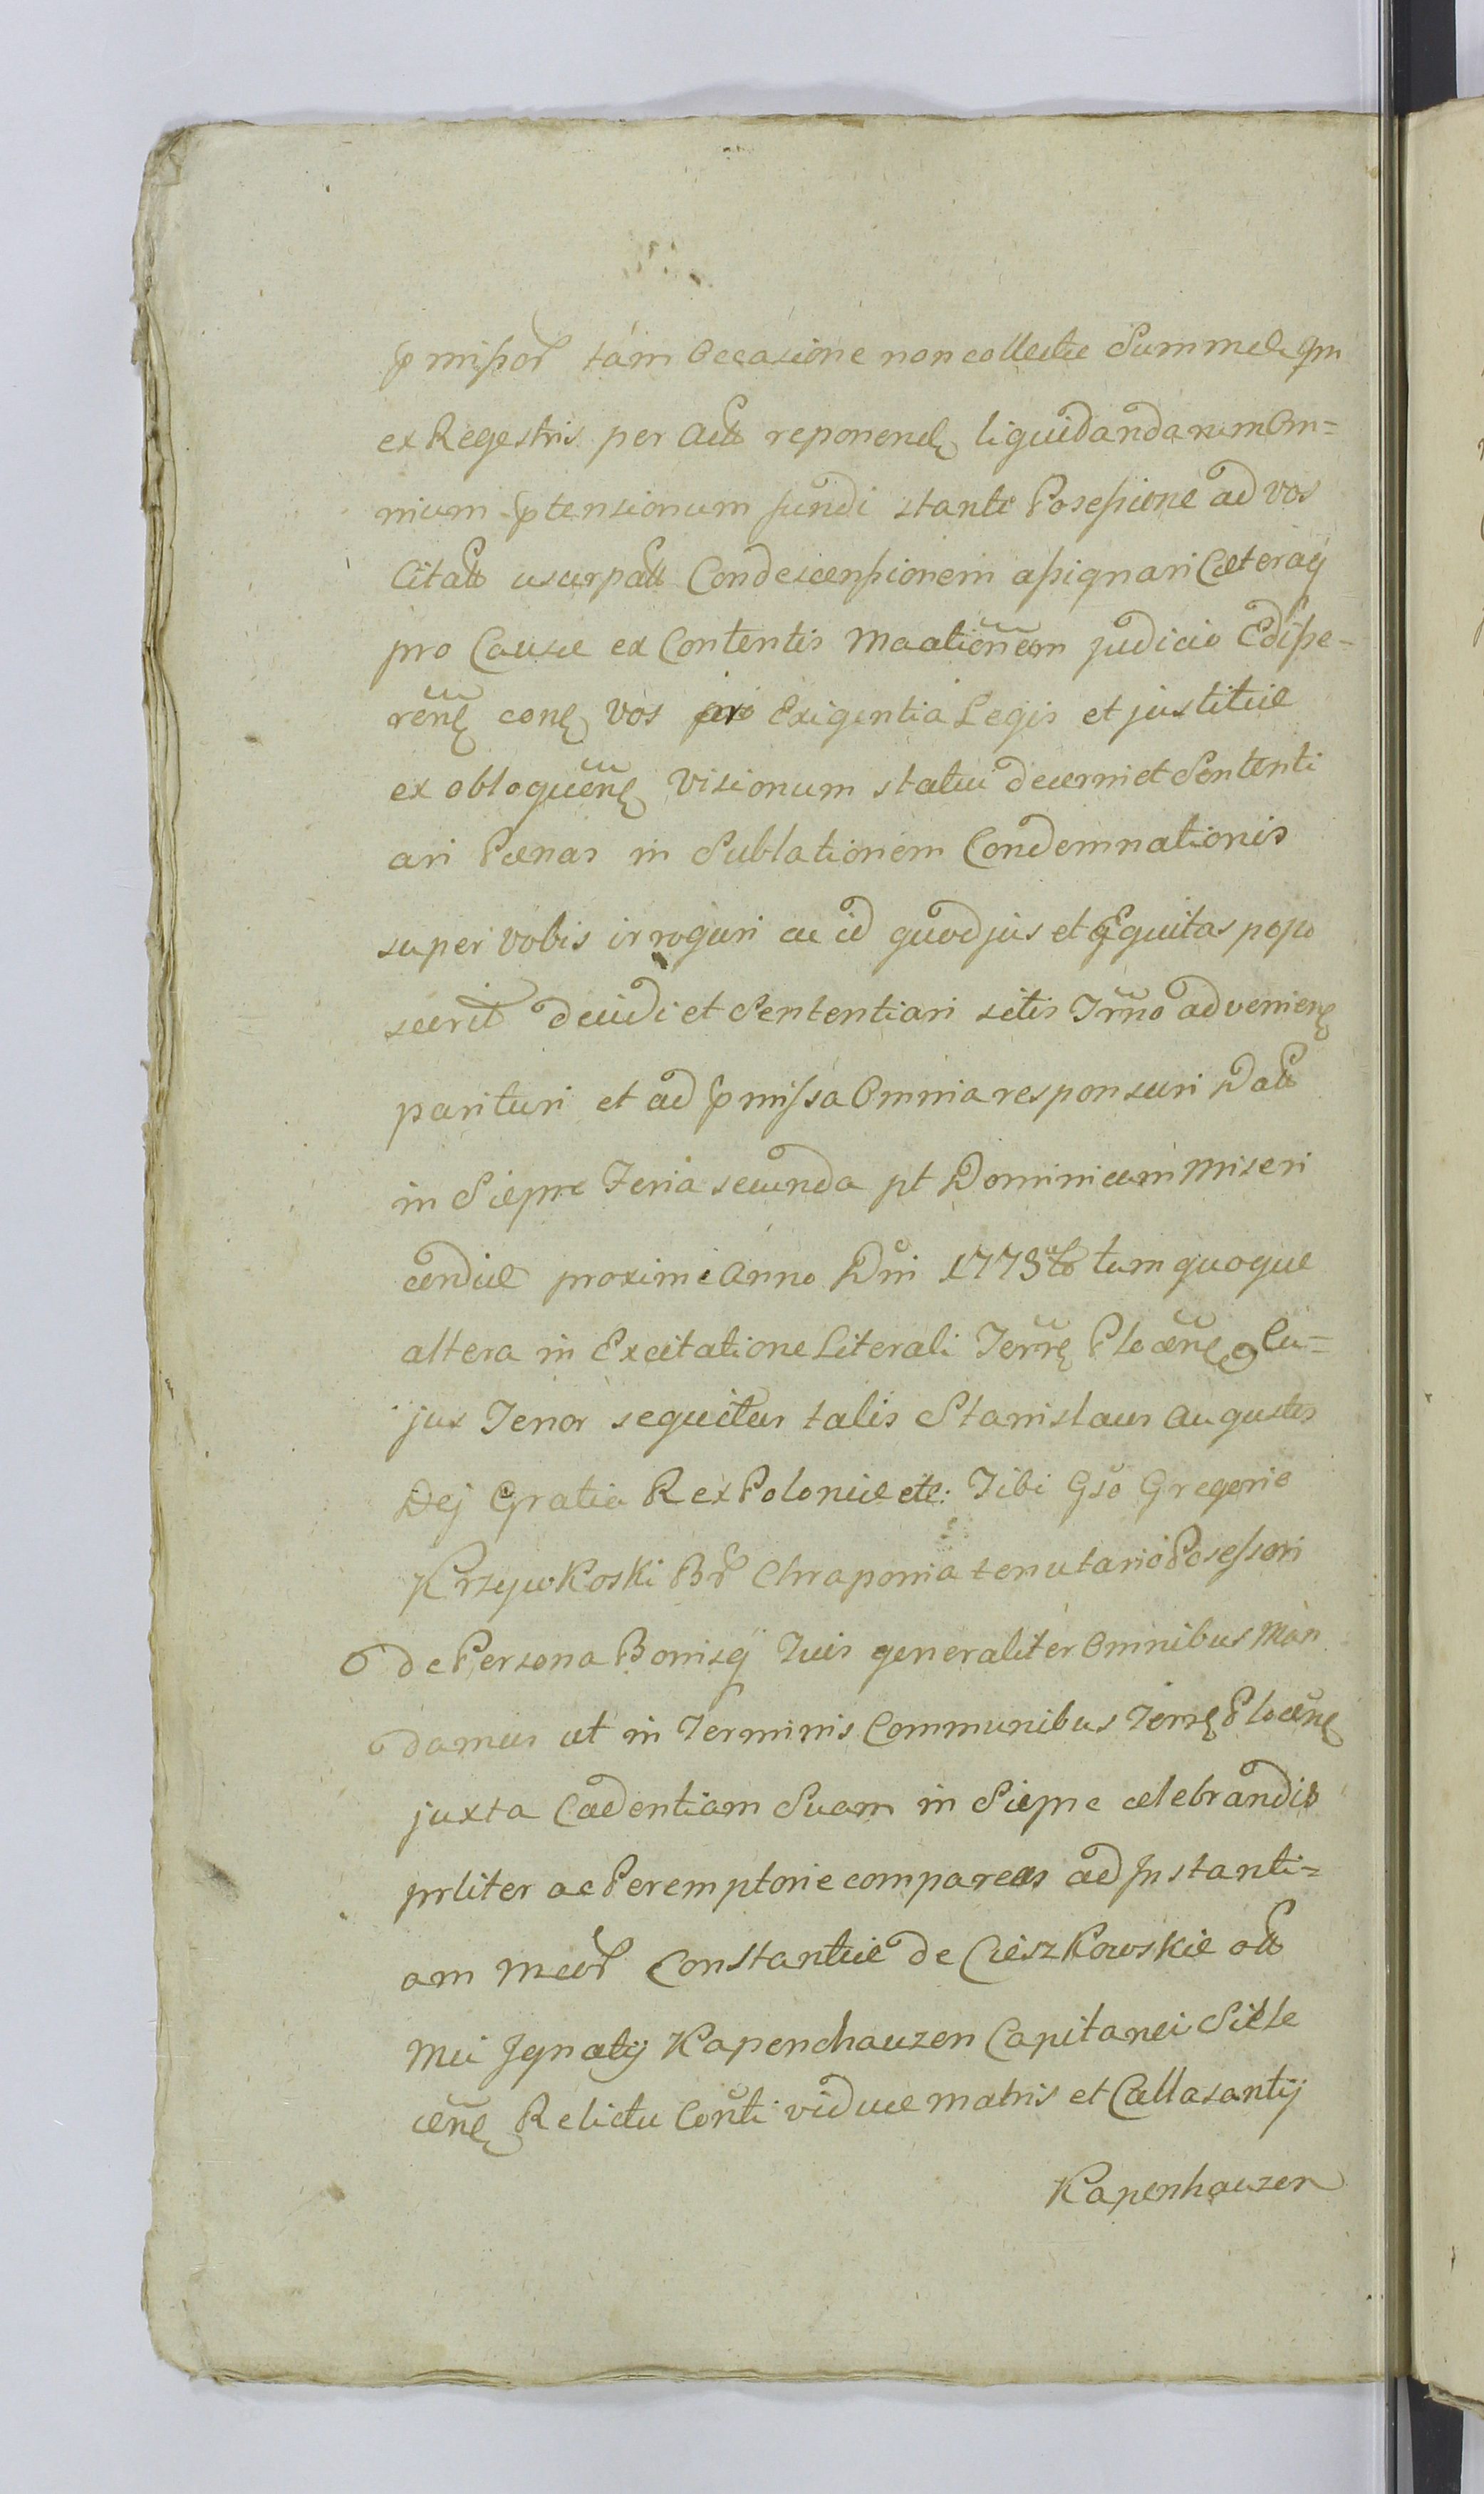 p̃missor̃ tam Occasione non collectæ Summæ qm
ex Regestris per Actt reponenð liquidandarum Om=
nium p̃tensionum fundi stante Posessione ad vos
Citatt usurpatt Condescenssionem assignari Cæteraq̃
pro Causæ ex Contentis Maationem judicio Edisse-
renð conð vos pro Exigentia Legis et justitiæ
ex obloquenð Visionum statui decerni et Sententi
ari Pœnas in Sublationem Condemnationis
super vobis irrogari ac id quod jus et Æquitas popo
scerit decidi et Sententiari sitis Trn̄o advenienð
parituri et ad p̃missa Omnia responsuri Datt
in Sieprc Feria secunda pt Dominicam Miseri
cordiæ proxime Anno Dni 1773tio tum quoque
altera in Excitatione Literali Terrð Plocenð Cu=
jus Tenor sequitur talis Stanislaus Augustus
Dej Gratia Rex Poloniæ etc: Tibi Gso Gregorio
Krzywkoski Br̃ Chraponia tenutario Posessori
de Persona Bonisq̃ Tuis generaliter Omnibus Man
damus ut in Terminis Communibus Terrð Plocenð
juxta Cadentiam Suam in Sieprc celebrandis
prliter ac Peremptorie compareas ad Instanti=
am Mcor̃ Constantiæ de Cieszkowskie ott
Mci Jgnatij Kapenchauzen Capitanei Sicle
cenð Relictæ Conti viduæ matris et Callasantij
Kapenhauzen